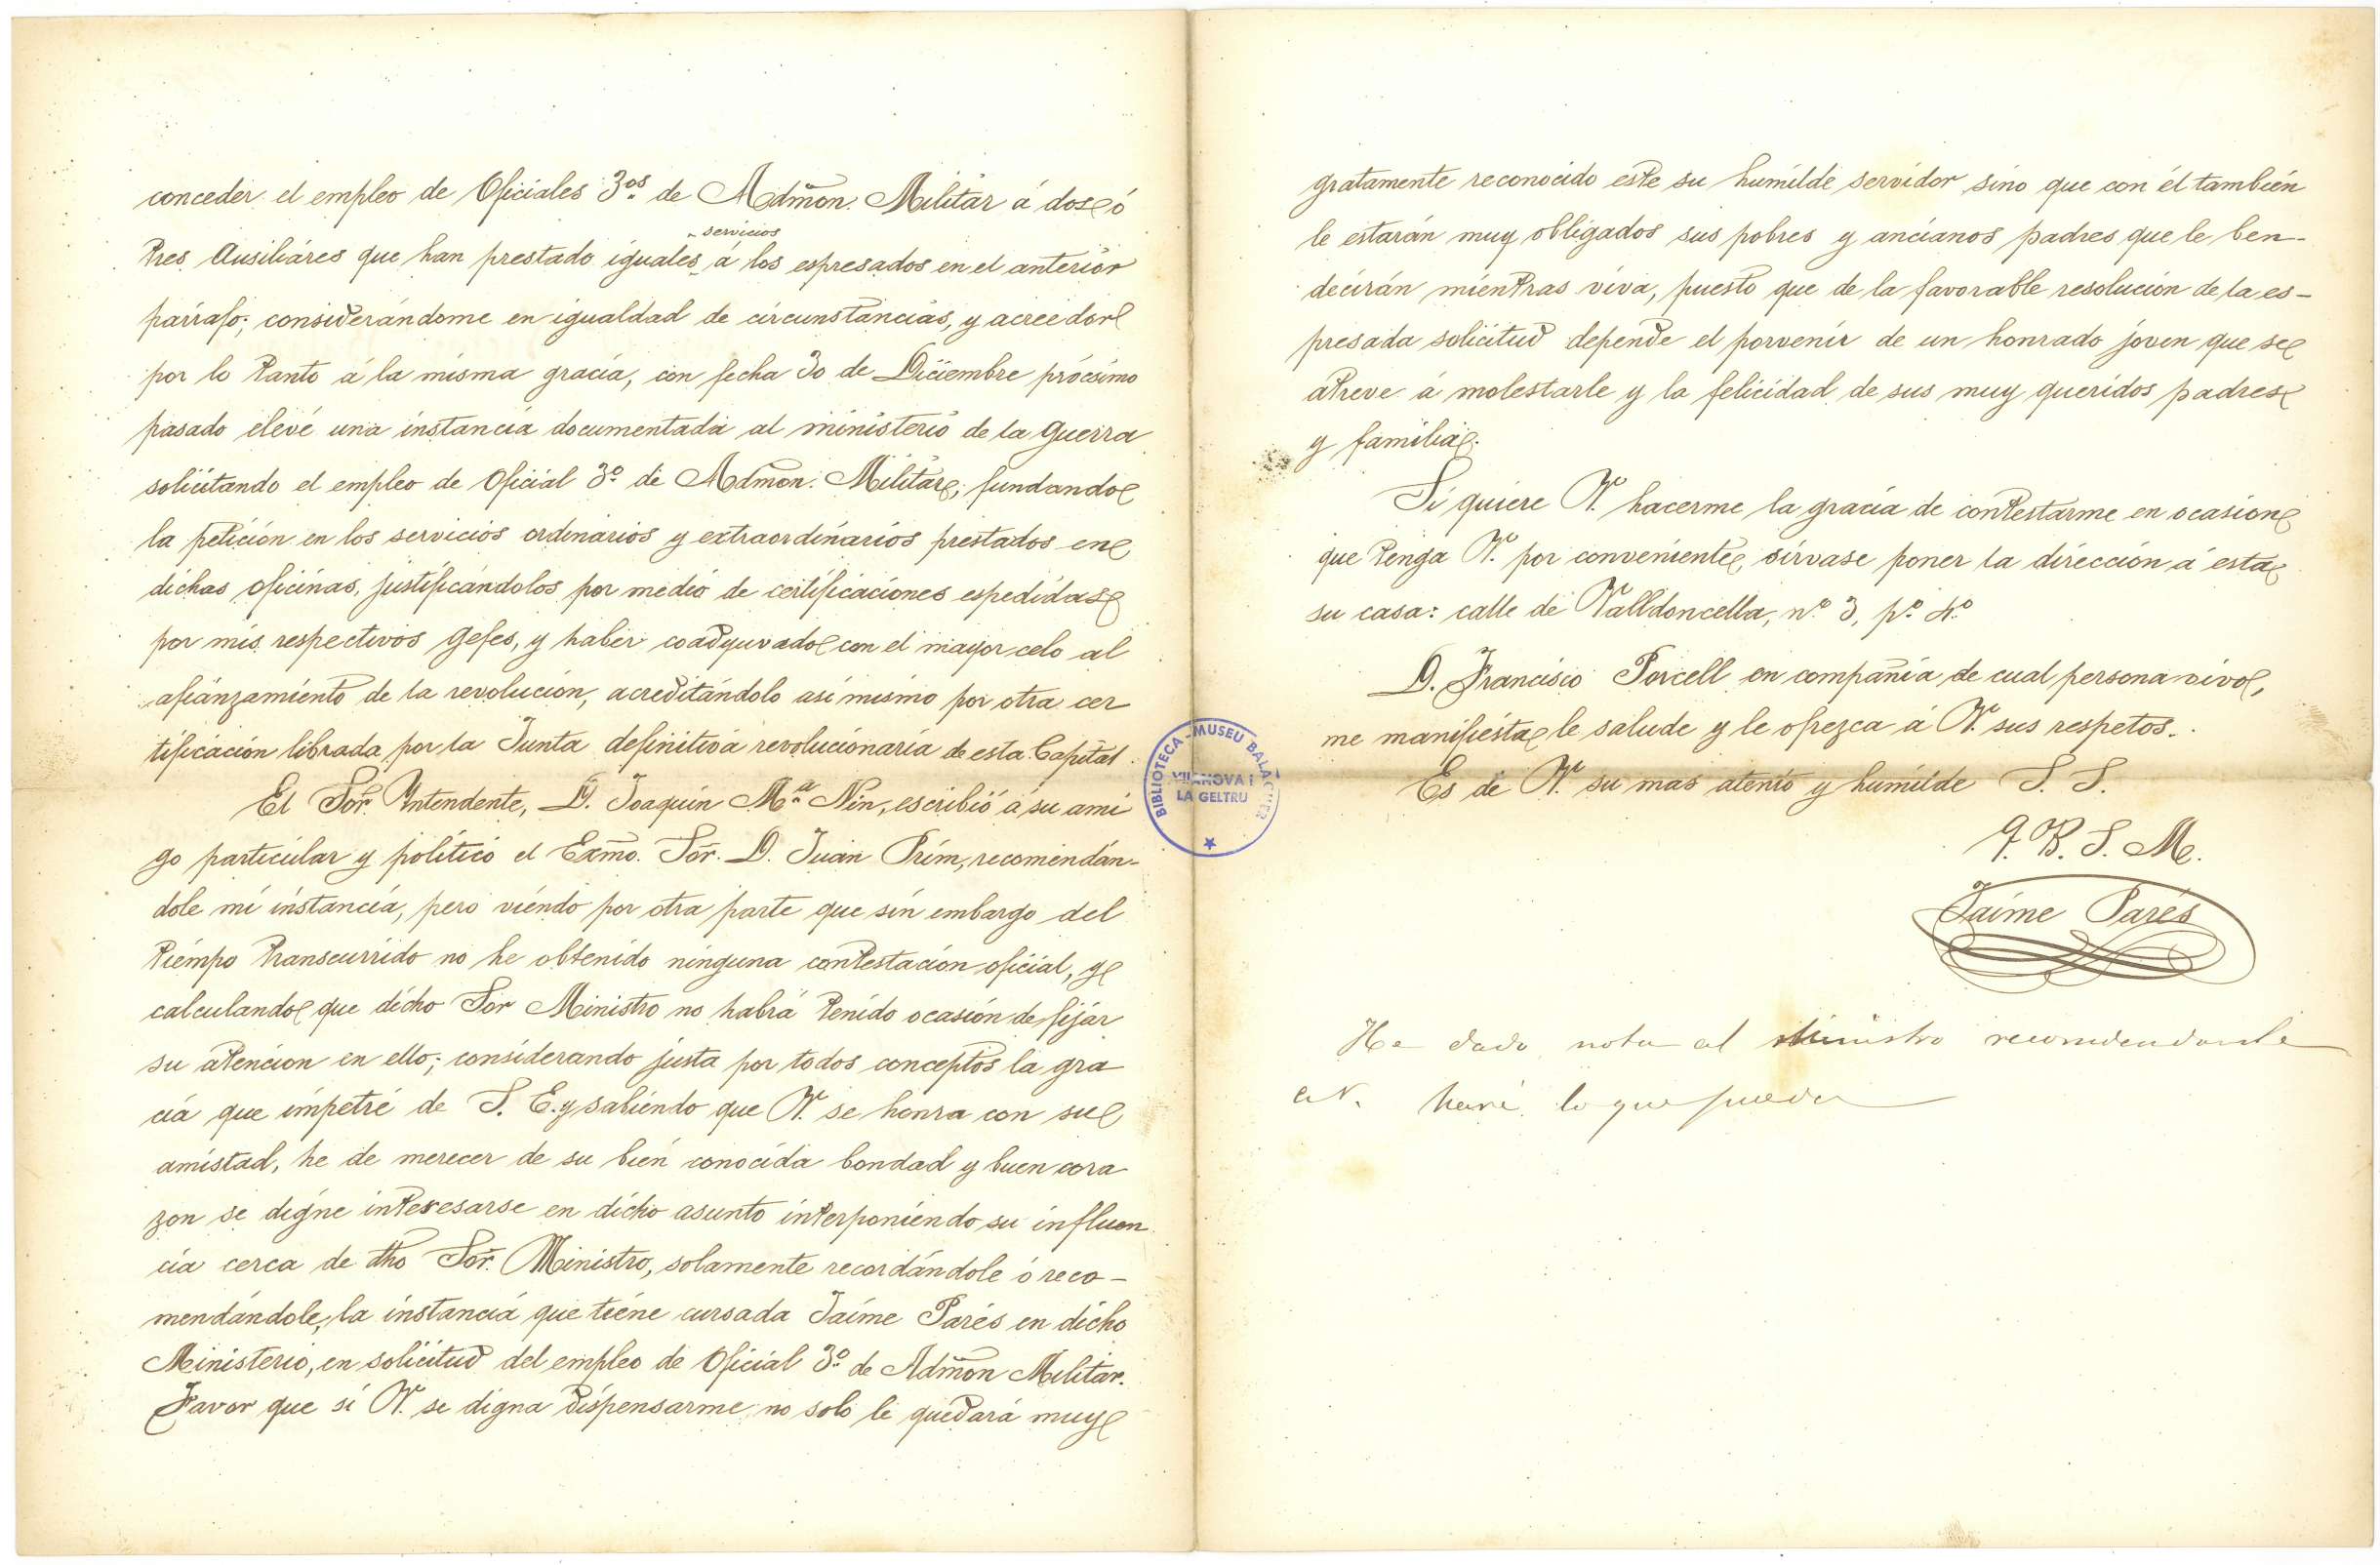 conceder el empleo de Oficiales 3.os de Admon. Militar á dos ó
servicios
tres Ausiliáres que han prestado iguales á los espresados en el anterior
párrafo; considerándome en igualdad de circunstancias, y acreedor
por lo tanto á la misma gracia, con fecha 30 de Diciembre prócsimo
pasado elevé una instancia documentada al ministerio de la Guerra
solicitando el empleo de Oficial 3.º de Admon. Militar; fundando
la petición en los servicios ordinarios y extraordinarios prestados en
dichas oficinas, justificándolos por medio de certificaciones espedidas
por mis respectivos Gefes, y haber coadyuvado con el mayor celo al
afianzamiento de la revolución, acreditándolo así mismo por otra cer
tificación librada por la Junta definitiva revolucionaria de esta Capital.
El Sor. Intendente, D. Joaquin M.ª Nin, escribió á su ami
go particular y político el Exmo. Sor. D. Juan Prim, recomendán-
dole mi instancia, pero viendo por otra parte que sin embargo del
tiempo transcurrido no he obtenido ninguna contestación oficial, y
calculando que dicho Sor Ministro no habrá tenido ocasión de fijar
su atencion en ello; considerando justa por todos conceptos la gra
cia que impetré de S. E. y sabiendo que V. se honra con su
amistad, he de merecer de su bien conocida bondad y buen cora
zon se digne interesarse en dicho asunto interponiendo su influen
cia cerca de dho Sor. Ministro, solamente recordándole ó reco-
mendándole, la instancia que tiene cursada Jaime Parés en dicho
Ministerio, en solicitud del empleo de Oficial 3.º de Admon Militar.
Favor que si V. se digna dispensarme no solo le quedará muy
gratamente reconocido este su humilde servidor sino que con él también
le estarán muy obligados sus pobres y ancianos padres que le ben-
decirán mientras viva, puesto que de la favorable resolución de la es-
presada solicitud depende el porvenir de un honrado joven que se
atreve á molestarle y la felicidad de sus muy queridos padres
y familia.
Si quiere V. hacerme la gracia de contestarme en ocasion
que tenga V. por conveniente, sírvase poner la dirección á esta
su casa: calle de Valldoncella, n.º 3, p.º 4.º
D. Francisco Porcell en compañia de cual persona vivo,
me manifiesta le salude y le ofrezca á V. sus respetos.
Es de V. su mas atento y humilde S. S.
Q. B. S. M.
Jaime Parés
He dado nota al Ministro recomendandole
a V. haré lo que pueda
BIBLIOTECA-MUSEU BALAGUER
VILANOVA I
LA GELTRU